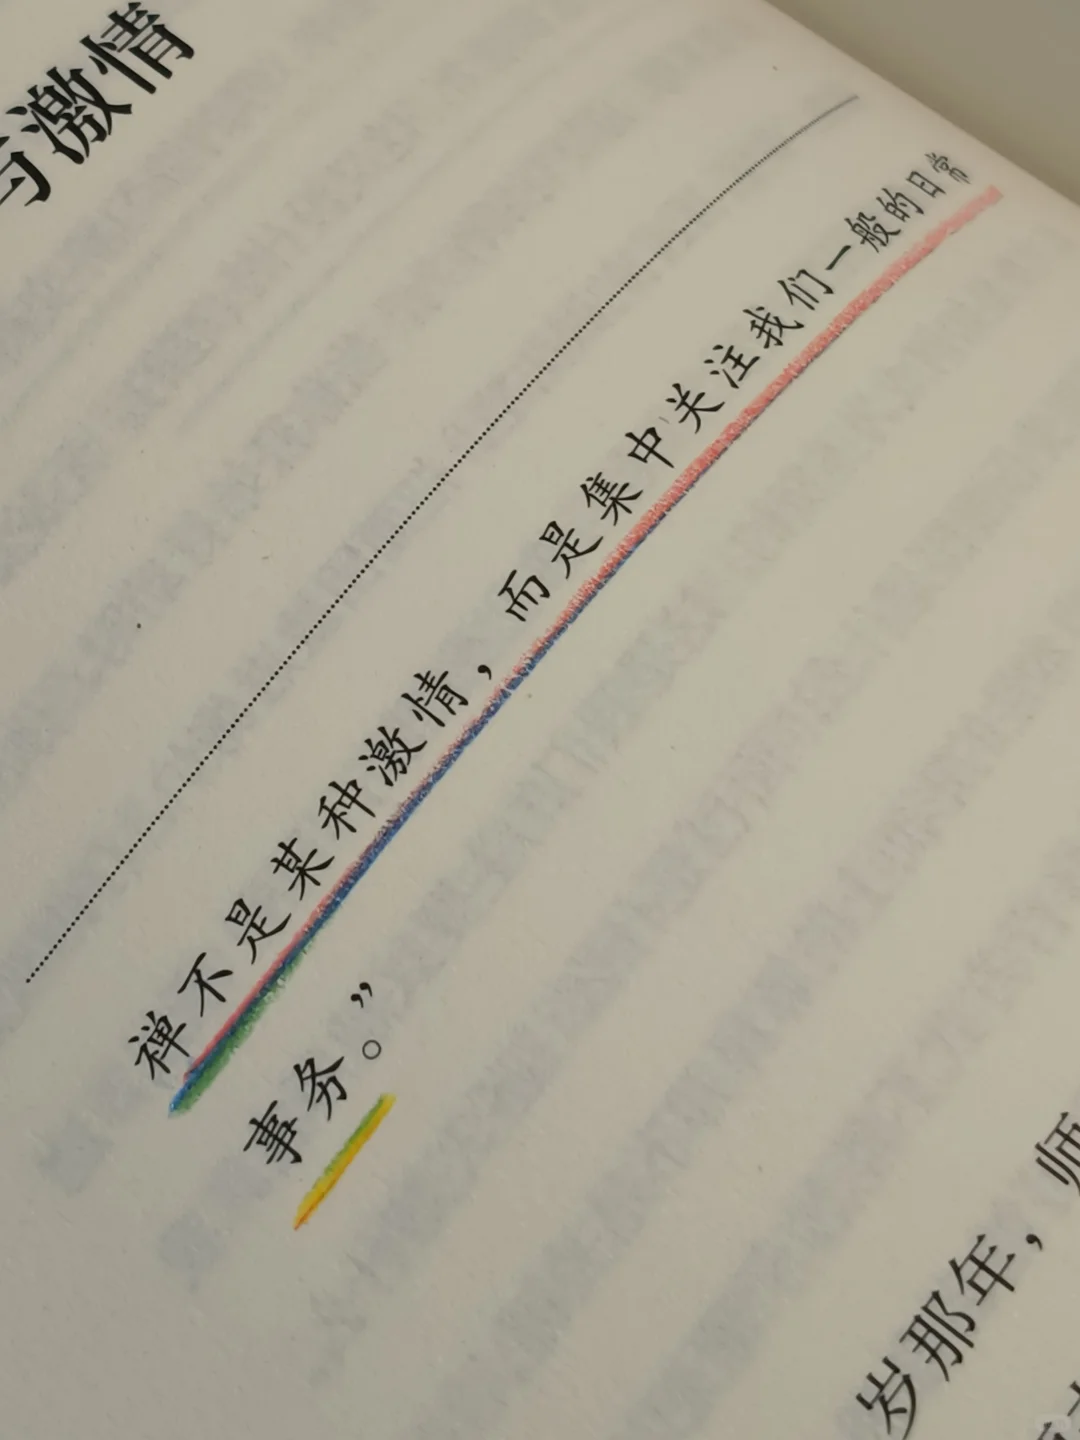 与激情
禅不是某种激情，而是集中关注我们一般的日常
事务。”
岁那年，师